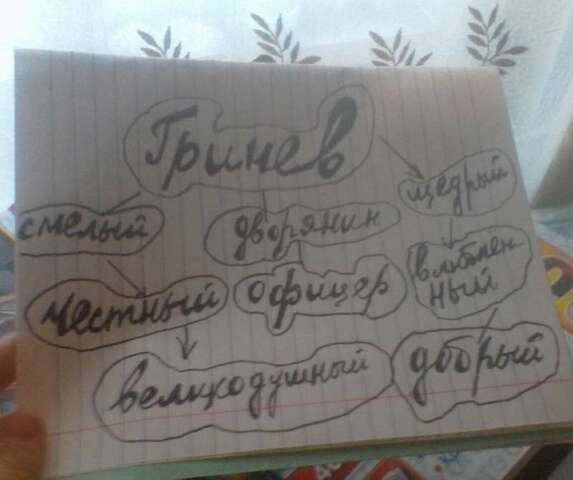 Гринев
смелый
дворянин
щедрый
честный
офицер
влюблен-
ный
великодушный
добрый